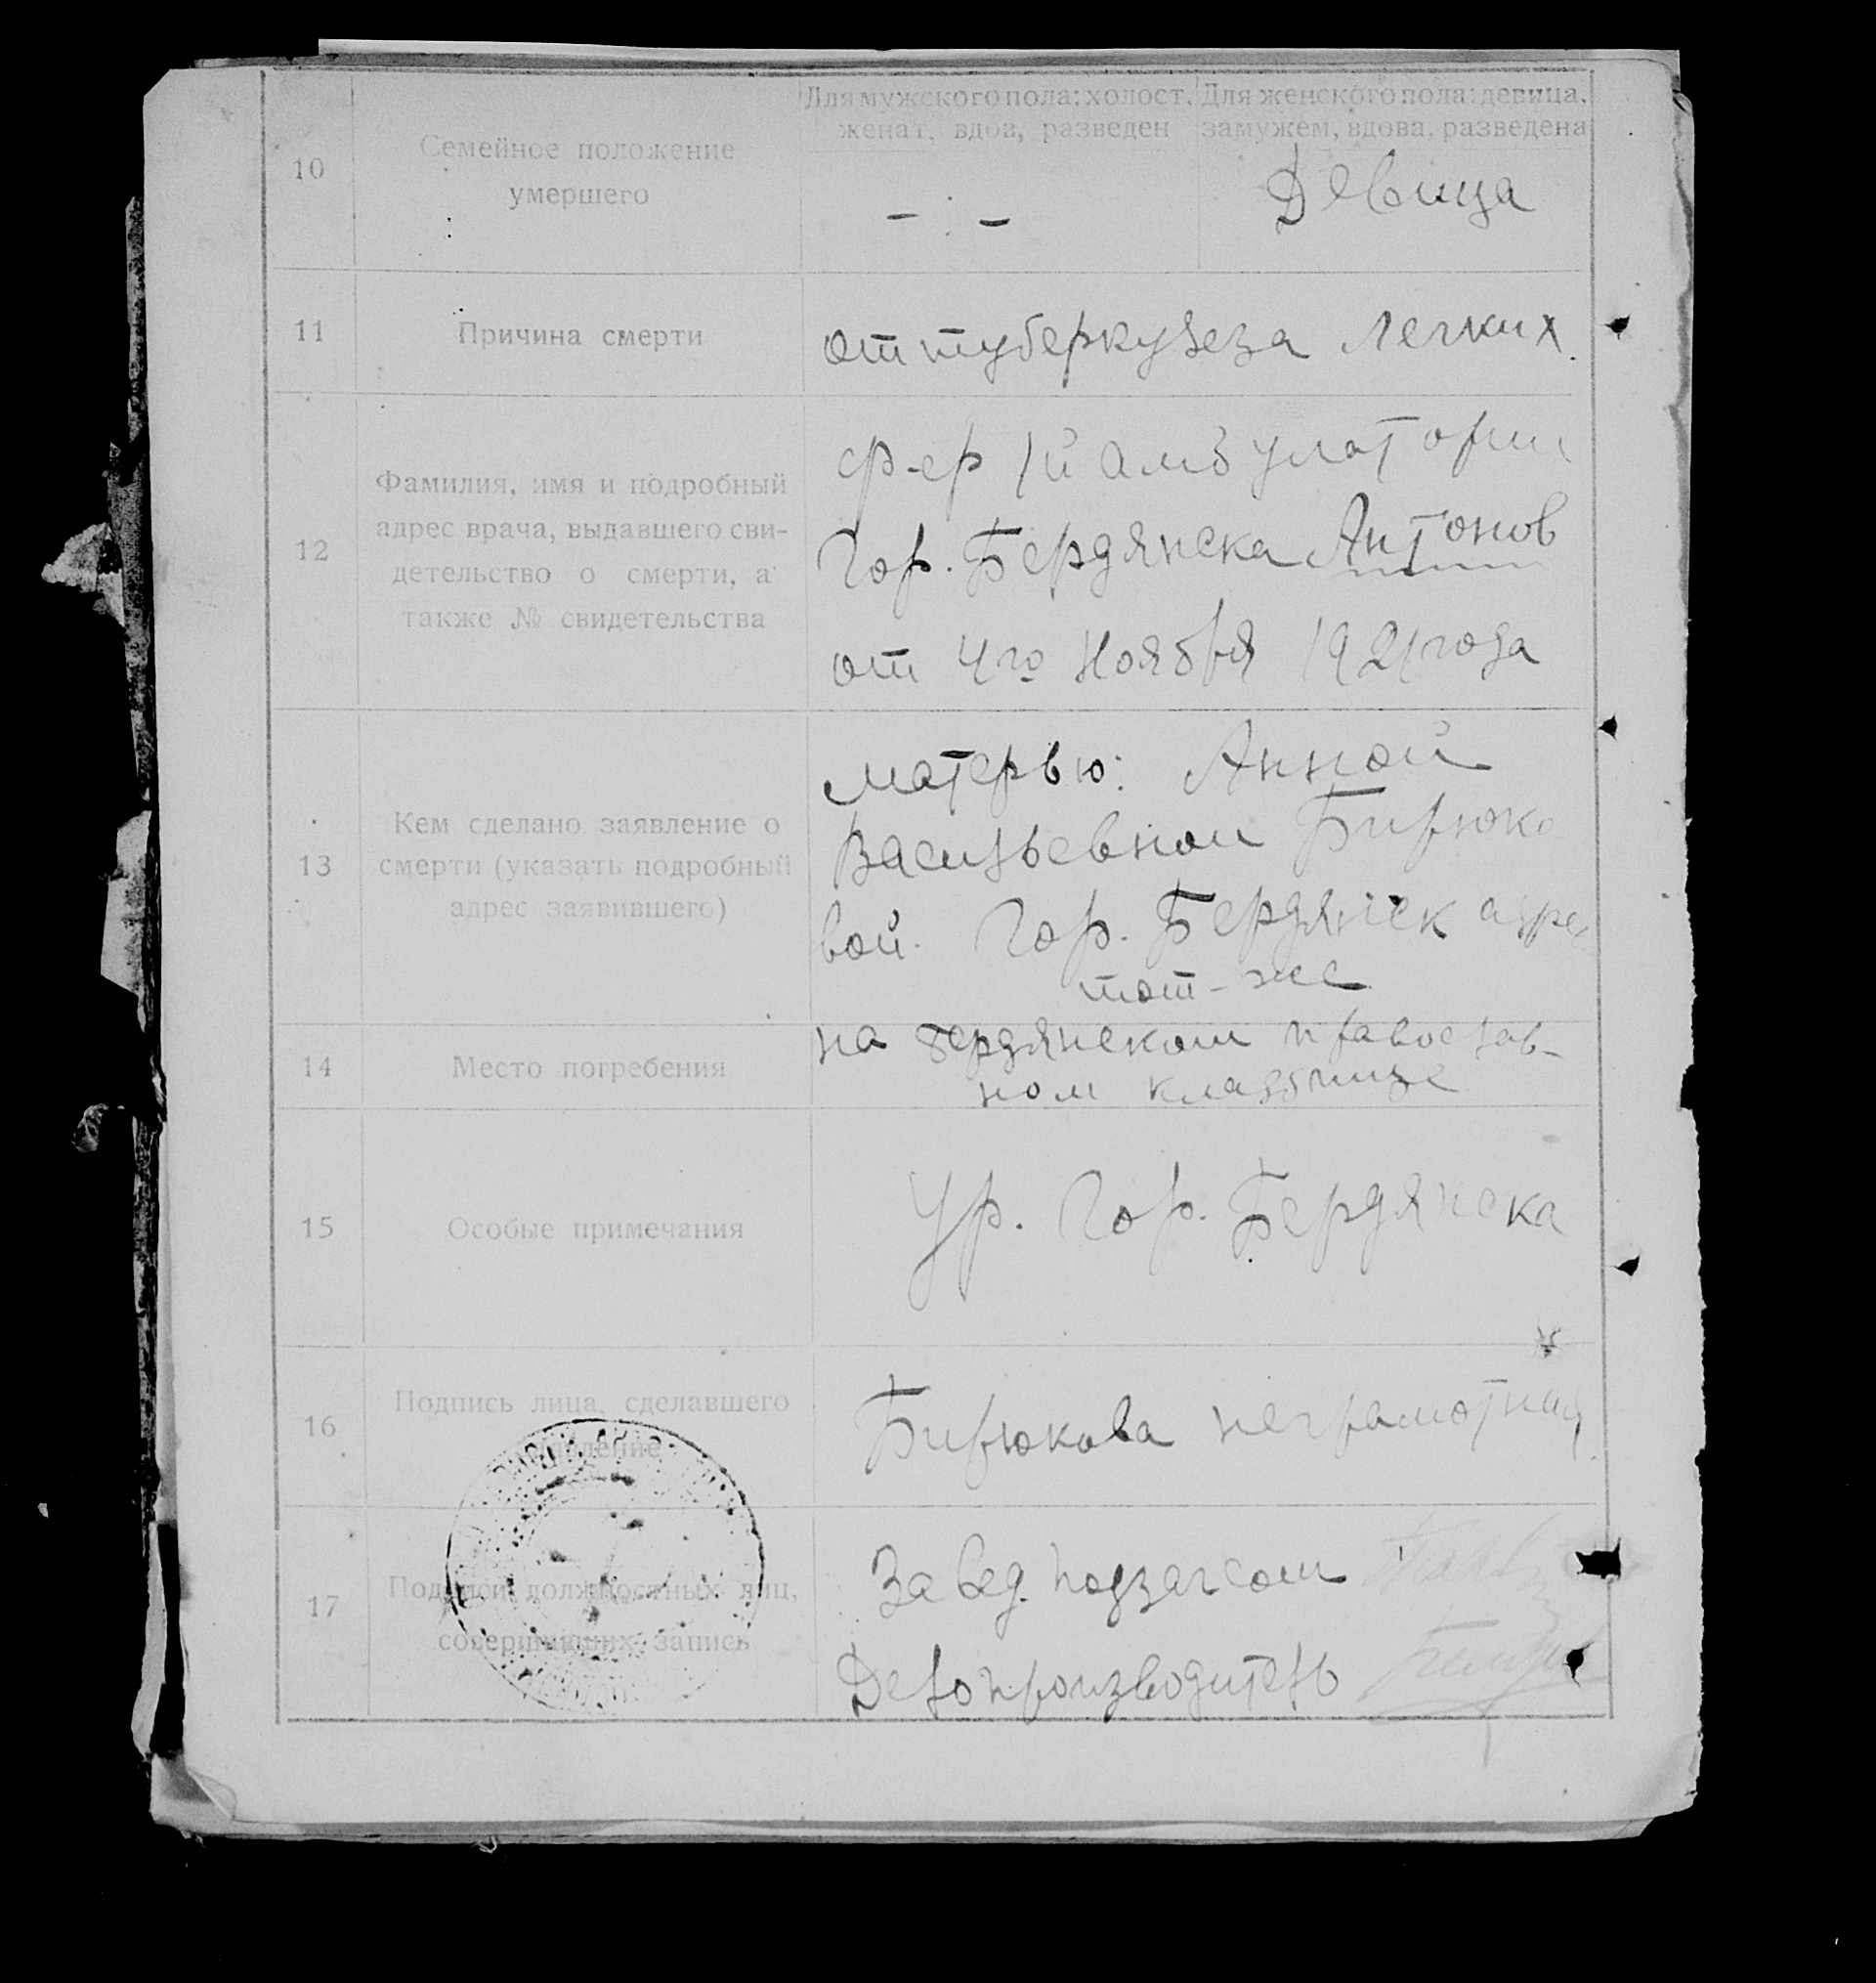 Для мужского пола: холост, женат, вдов, разведен
Для женского пола: девица, замужем, вдова, разведена
10
Семейное положение
умершего
— : —
Девица
11
Причина смерти
от туберкулеза легких.
12
Фамилия, имя и подробный
адрес врача, выдавшего сви-
детельство о смерти, а
также № свидетельства
ф-ер 1й амбулатории
Гор. Бердянска Антонов
от 4го Ноября 1921 года
13
Кем сделано заявление о
смерти (указать подробный
адрес заявившего)
матерью: Анной
Васильевной Бирюко
вой. Гор. Бердянск адрес
тот-же
14
Место погребения
на бердянском православ-
ном кладбище
15
Особые примечания
Ур. Гор. Бердянска
16
Подпись лица, сделавшего
заявление
Бирюкова неграмотная
17
Подписи должностных лиц,
совершивших запись
Завед. подзагсом
Делопроизводитель